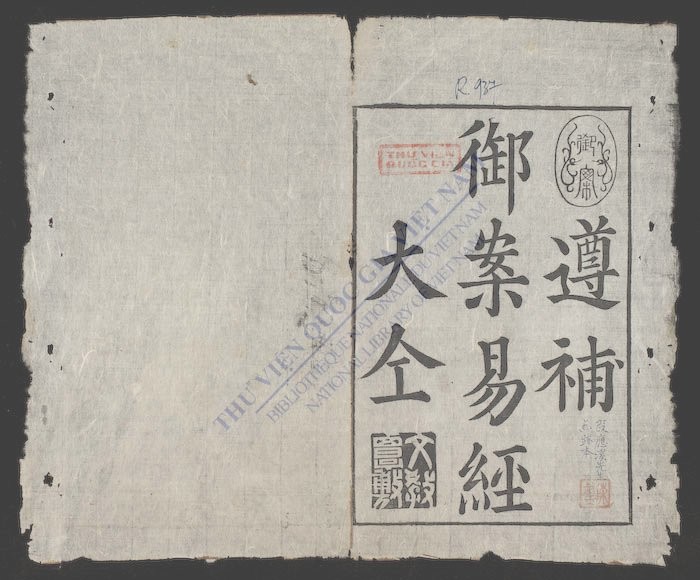 R.937
御案
遵補
御案易經
大仝
文敎
THƯ VIỆN
QUỐC GIA
THƯ VIỆN QUỐC GIA VIỆT NAM
BIBLIOTHÈQUE NATIONALE DU VIETNAM
NATIONAL LIBRARY OF VIETNAM